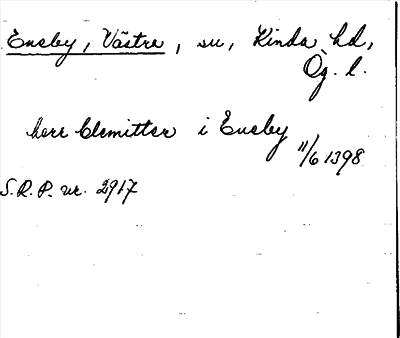 Eneby, Västra, su, Kinda hd,
Ög. l.
herr Clemitter i Eneby
11/6 1398
S.R.P. nr. 2917